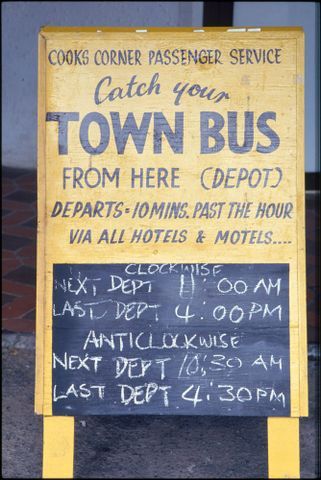 COOKS CORNER PASSENGER SERVICE
Catch your
TOWN BUS
FROM HERE (DEPOT)
DEPARTS=10MINS. PAST THE HOUR
VIA ALL HOTELS & MOTELS....
CLOCKWISE
NEXT DEPT 11:00 AM
LAST DEPT 4:00PM
ANTICLOCKWISE
NEXT DEPT 10:30 AM
LAST DEPT 4:30PM